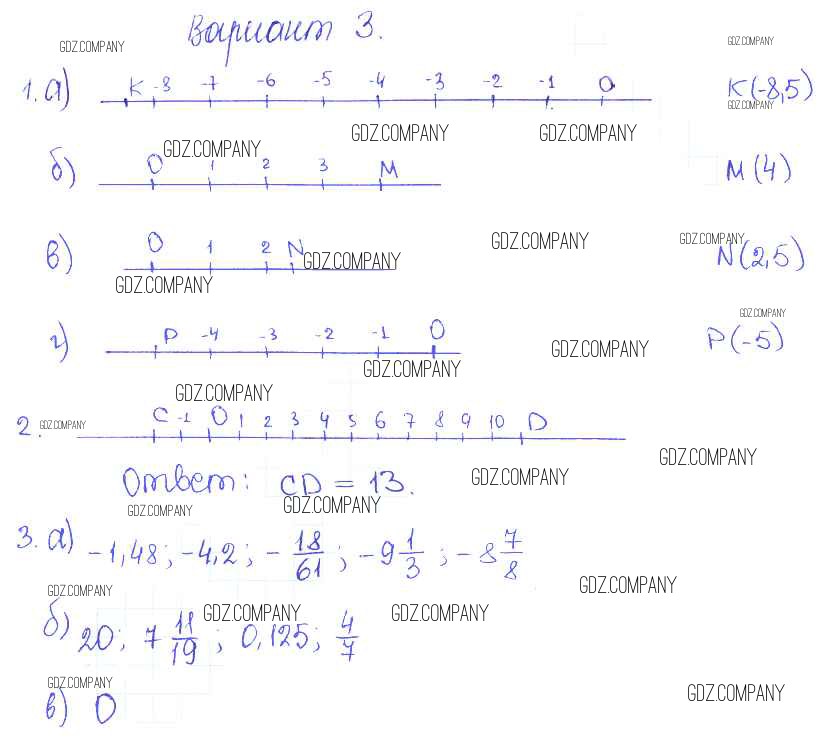 Вариант 3.
GDZ.COMPANY
GDZ.COMPANY
1. а) K -8 -7 -6 -5 -4 -3 -2 -1 O K(-8,5)
GDZ.COMPANY
GDZ.COMPANY GDZ.COMPANY GDZ.COMPANY
б) O 1 2 3 M M(4)
GDZ.COMPANY GDZ.COMPANY
в) O 1 2 N GDZ.COMPANY N(2,5)
GDZ.COMPANY
GDZ.COMPANY
г) P -4 -3 -2 -1 O GDZ.COMPANY P(-5)
GDZ.COMPANY
GDZ.COMPANY
2. GDZ.COMPANY C -1 O 1 2 3 4 5 6 7 8 9 10 D
GDZ.COMPANY
Ответ: CD = 13.
GDZ.COMPANY
GDZ.COMPANY GDZ.COMPANY
3. а) -1,48; -4,2; - 18/61; -9 1/3; -8 7/8
GDZ.COMPANY GDZ.COMPANY
GDZ.COMPANY GDZ.COMPANY
б) 20; 7 11/19; 0,125; 4/7
GDZ.COMPANY GDZ.COMPANY
в) 0